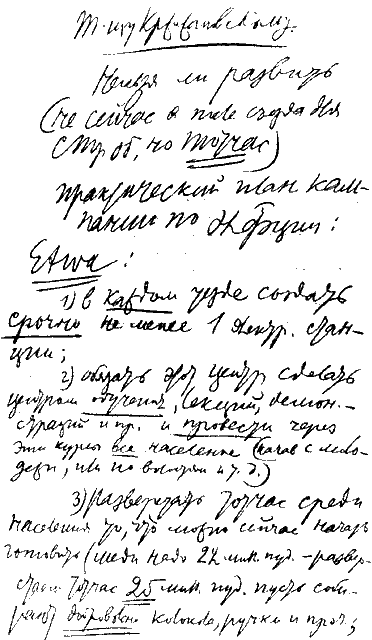 т-щу Кржижановскому.
Нельзя ли развить
(не сейчас а съезда для
но тотчас)
практический план кам-
пании по :
Etwa:
1) в каждом уезде создать
срочно не менее 1 электр. стан-
ции;
2) обязать этот центр сделать
центром обучения, лекций, демон-
страций и пр. и провести через
эти курсы все население (начав с моло-
дежи, или по волостям и т. д.)
3) Разверстать тотчас среди
населения то, что можно сейчас начать
готовить (меди надо 22 мил. пуд. - развер-
стаем тотчас 25 мил. пуд. пусть соби-
рают добровольно колокола, ручки и проч.;